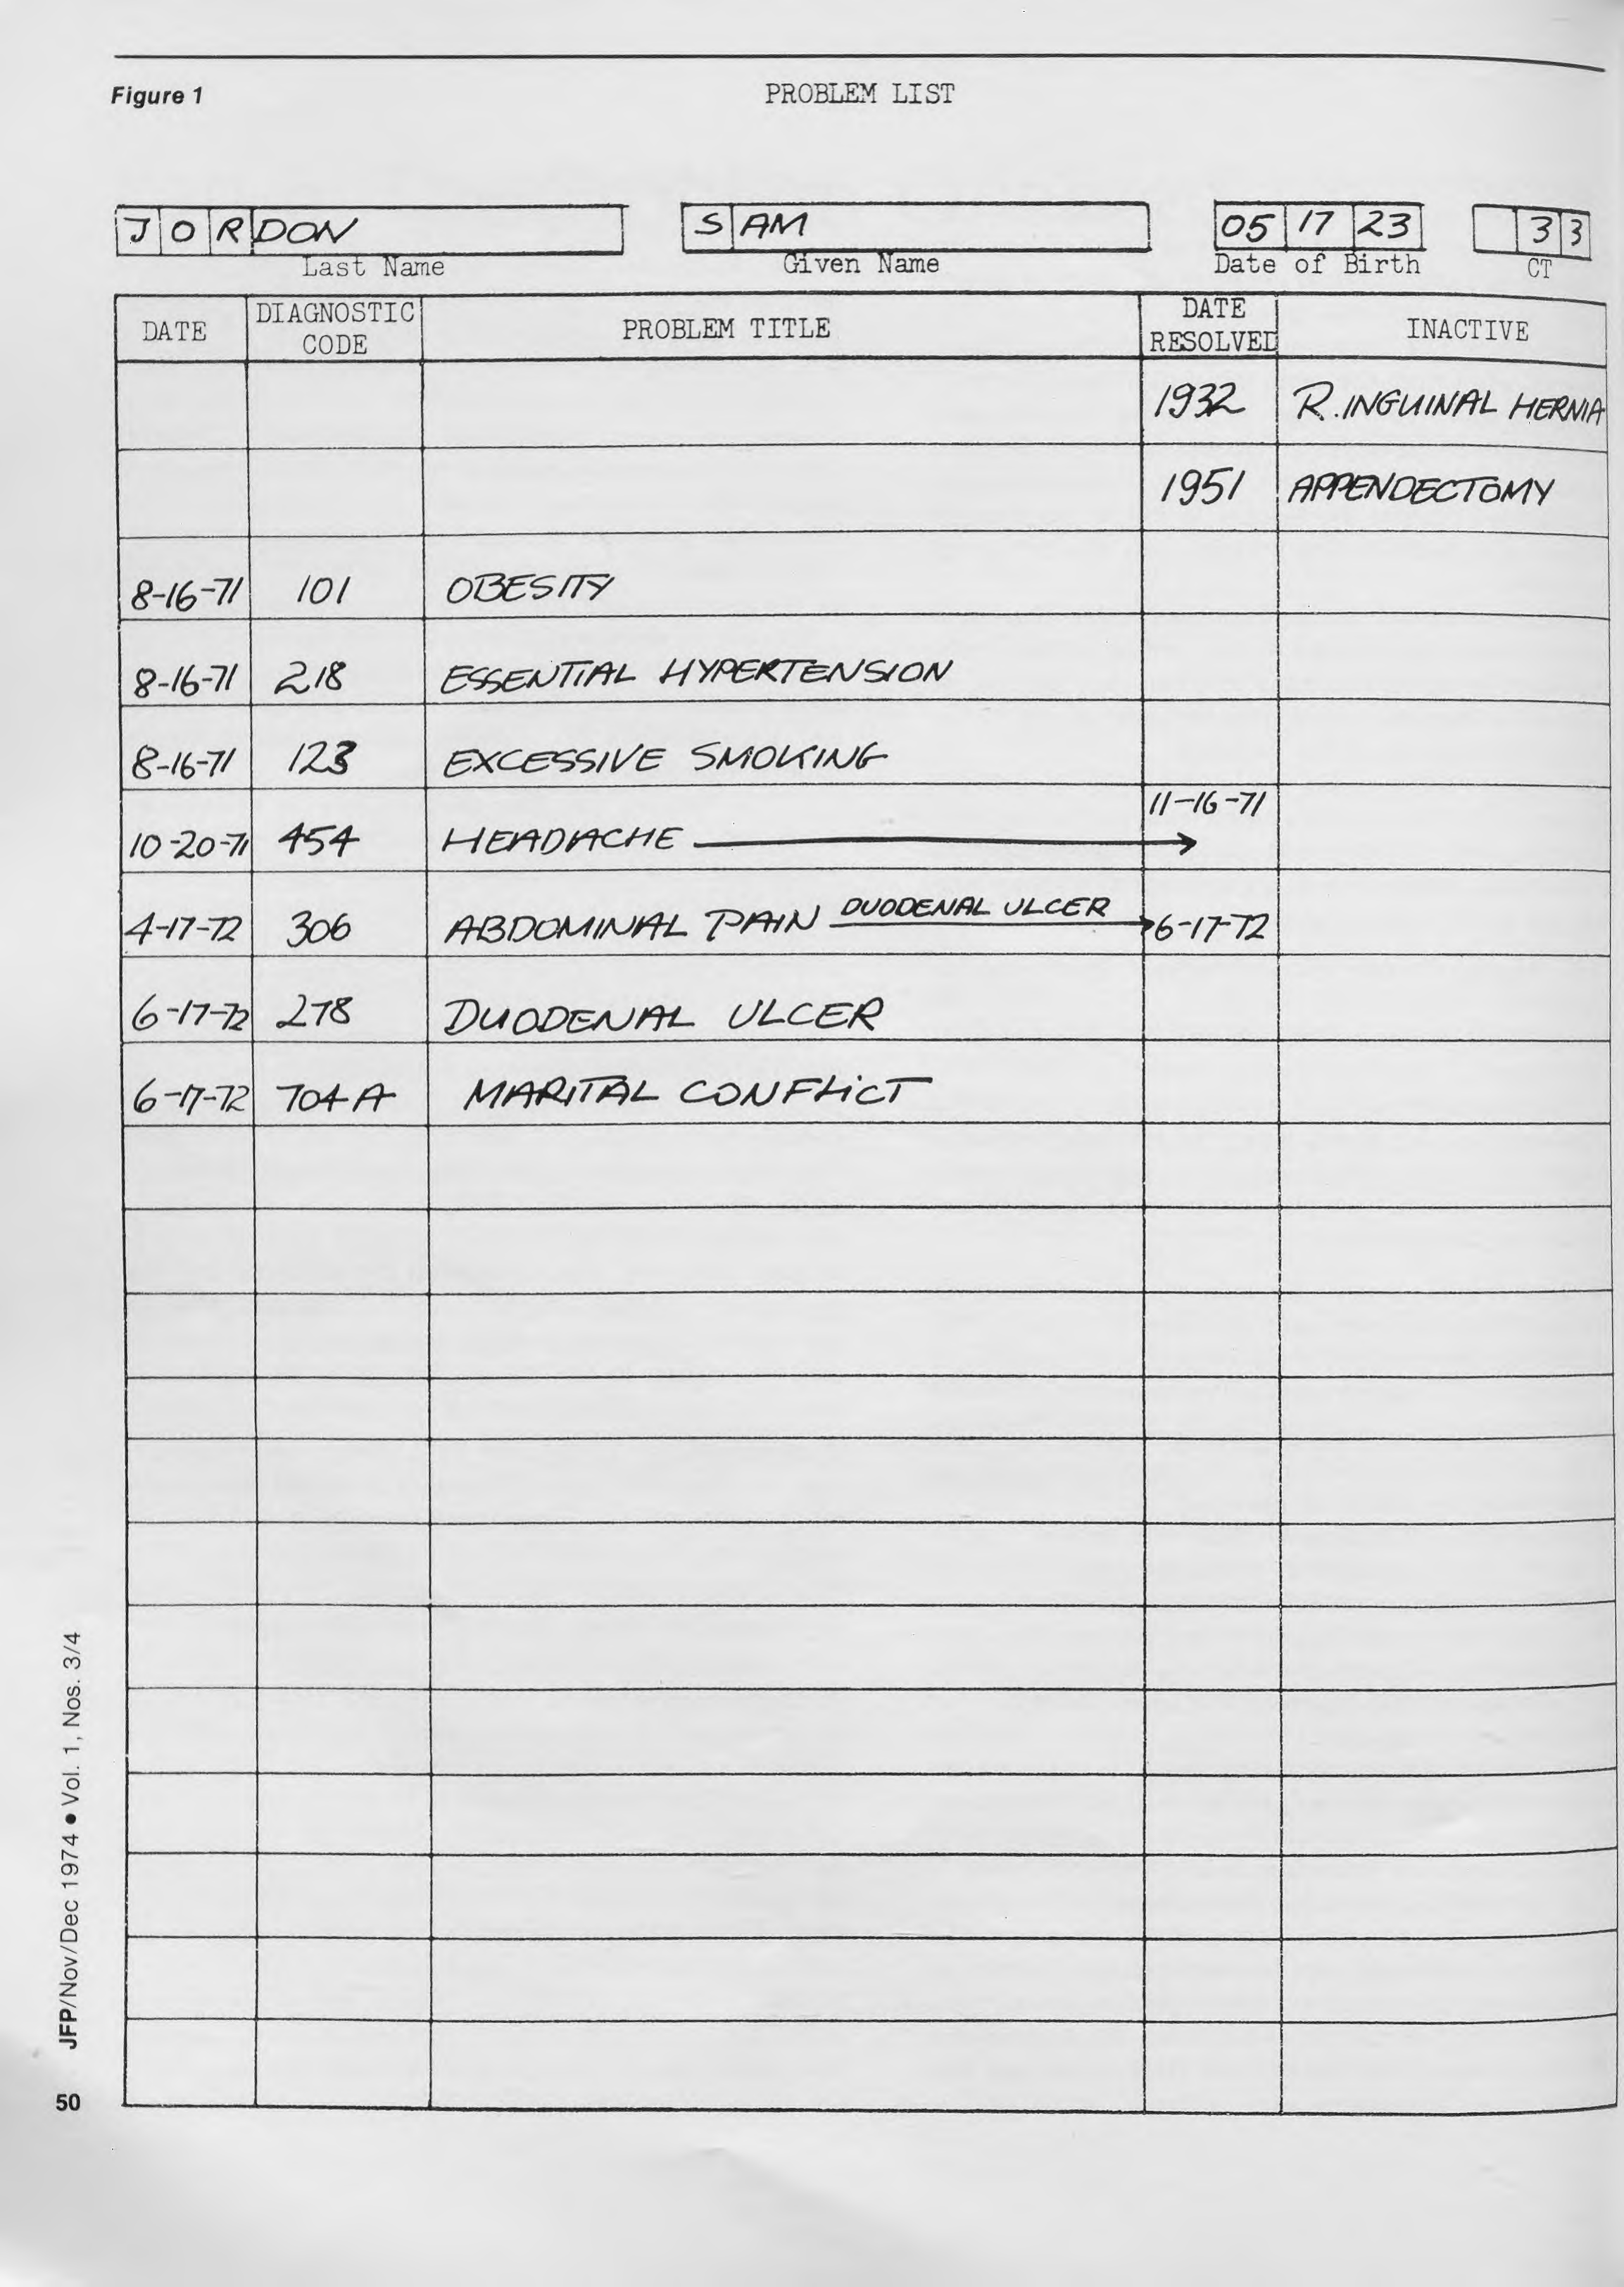 Figure 1
PROBLEM LIST
JORDON SAM 05 17 23 33
Last Name Given Name Date of Birth CT
DATE DIAGNOSTIC CODE PROBLEM TITLE DATE RESOLVED INACTIVE
1932 R. INGUINAL HERNIA
1951 APPENDECTOMY
8-16-71 101 OBESITY
8-16-71 218 ESSENTIAL HYPERTENSION
8-16-71 123 EXCESSIVE SMOKING
10-20-71 454 HEADACHE → 11-16-71
4-17-72 306 ABDOMINAL PAIN DUODENAL ULCER → 6-17-72
6-17-72 278 DUODENAL ULCER
6-17-72 704A MARITAL CONFLICT
JFP/Nov/Dec 1974 • Vol. 1, Nos. 3/4
50